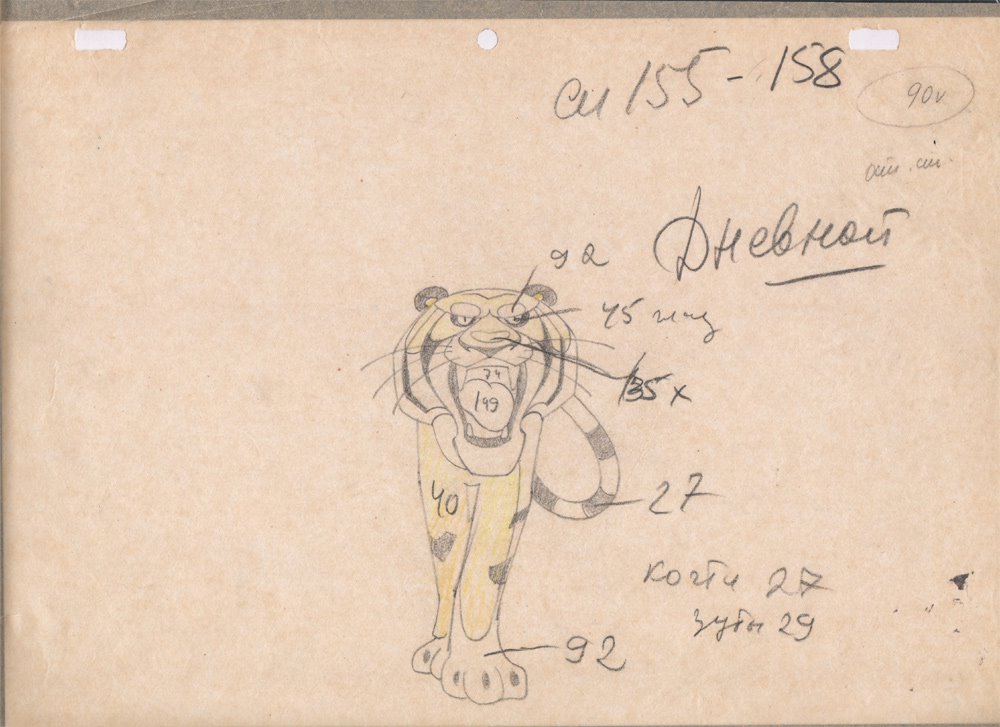 см 155 - 158
90v
Дневной
92
45
135 х
74
199
40
27
когти 27
зубы 29
92